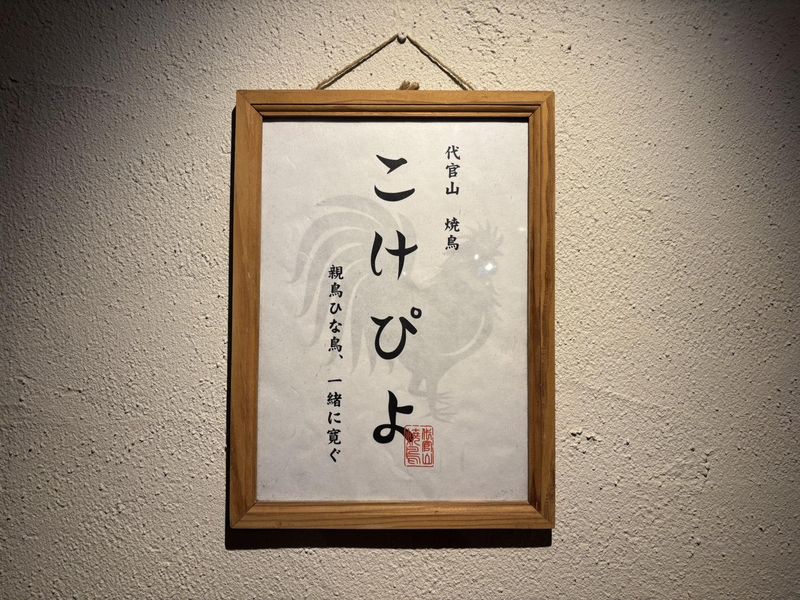 代官山 焼鳥
こけぴよ
親鳥ひな鳥、一緒に寛ぐ
代官山
焼鳥